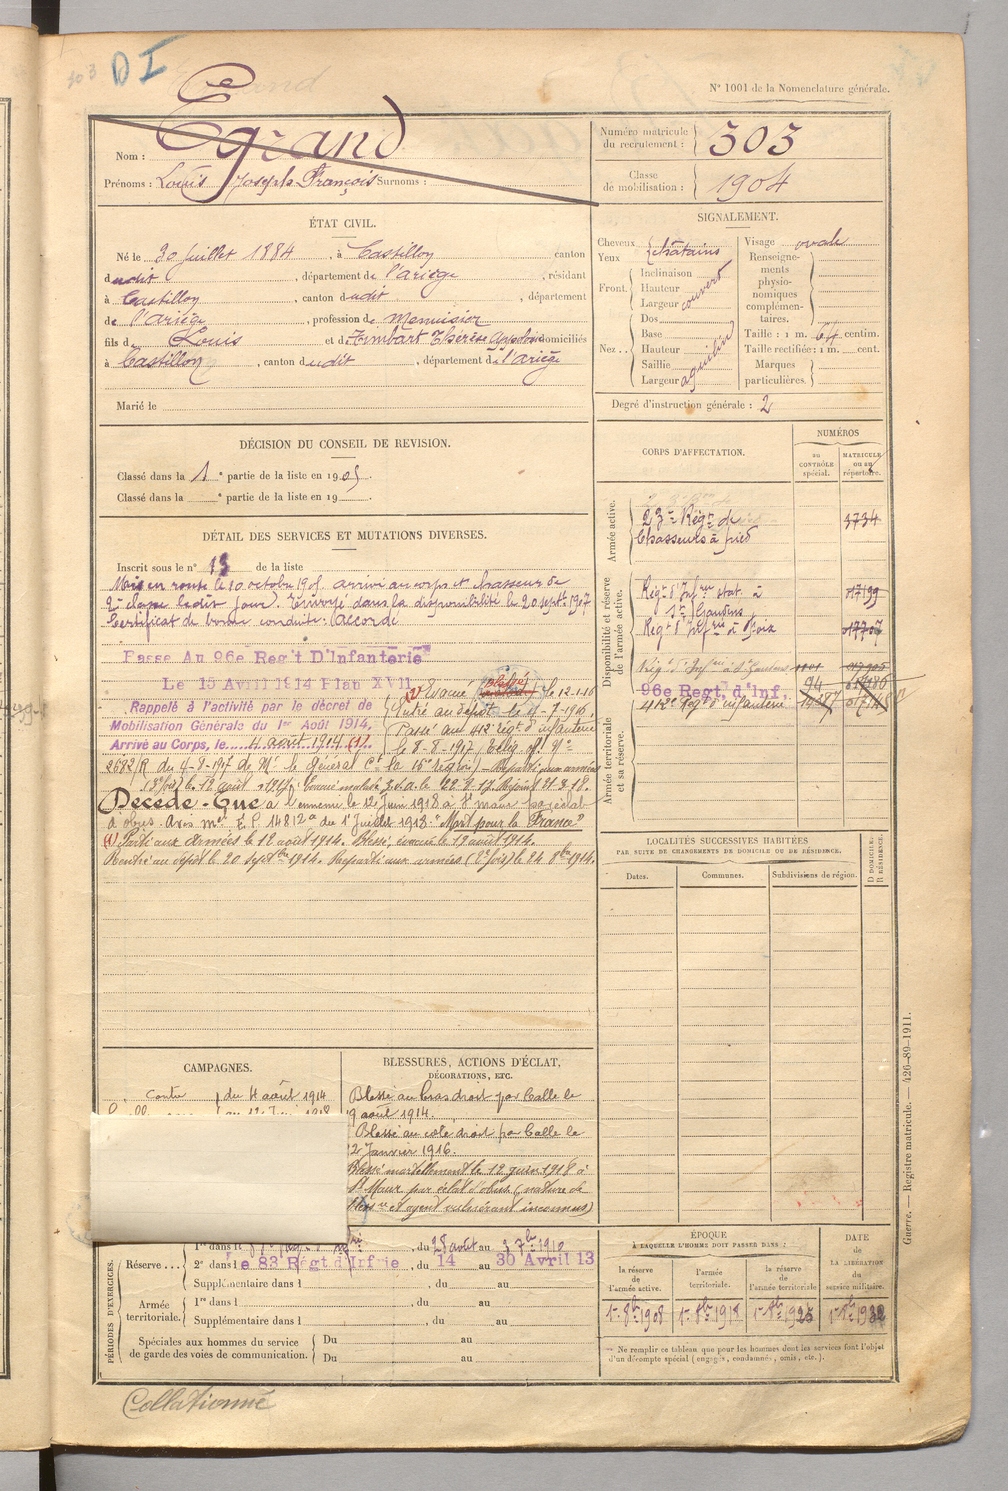 DI
N° 1001 de la Nomenclature générale.
Nom : Egrand
Prénoms : Louis Joseph François Surnoms :
Numéro matricule du recrutement : 303
Classe de mobilisation : 1904
ÉTAT CIVIL.
Né le 30 Juillet 1884, à Castillon canton
dudit, département de l'ariège, résidant
à Castillon, canton dudit, département
de l'ariège, profession de Menuisier
fils de Louis et de Thérèse domiciliés
à Castillon, canton dudit, département de l'ariège
Marié le
SIGNALEMENT.
Cheveux
Yeux
châtains
Front.
Inclinaison
Hauteur
Largeur
couvert
Nez..
Dos
Base
Hauteur
Saillie
Largeur
aquilin
Visage ovale
Renseignements physionomiques complémentaires.
Taille : 1 m. 64 centim.
Taille rectifiée : 1 m. cent.
Marques particulières.
Degré d'instruction générale : 2
DÉCISION DU CONSEIL DE REVISION.
Classé dans la 1e partie de la liste en 1905
Classé dans la e partie de la liste en 19
DÉTAIL DES SERVICES ET MUTATIONS DIVERSES.
Inscrit sous le n° 13 de la liste
Mis en route le 10 octobre 1905 arrivé au corps et chasseur de
2e classe ledit jour. Envoyé dans la disponibilité le 20 septe 1907
Certificat de bonne conduite : Accordé
Passé Au 96e Reg't D'Infanterie
Le 15 Avril 1914 Plan XVII
Rappelé à l'activité par le décret de
Mobilisation Générale du 1er Août 1914,
Arrivé au Corps, le 4 août 1914 (1).
(2) Evacué (blessé) le 12-1-16
Rentré au dépôt le 4-7-1916,
Passé au 412e régt d'infanterie
le 8-8-1917
2682/R du 4-8-1917 de Mr le général Ct la 16e région) - Reparti aux armées
(3e fois) le 12 août 1917. Evacué le 22-8-17. Rejoint 21-3-18.
Décédé - Tué à l'ennemi le 12 juin 1918 à St Maur par éclat
d'obus. Avis mel E.P. 14812 du 1er Juillet 1918. "Mort pour la France"
(1) Parti aux armées le 12 août 1914. Blessé, évacué le 19 août 1914.
Rentré au dépôt le 20 septbre 1914. Reparti aux armées (2e fois) le 24 8bre 1914.
CORPS D'AFFECTATION.
NUMÉROS
au CONTRÔLE spécial.
MATRICULE ou au répertoire.
Armée active.
23e Régt de Chasseurs à pied 3734
Disponibilité et réserve de l'armée active.
Régt d'Infrie stat. à St Gaudens 017199
Régt d'Infrie à Foix 017707
Régt d'Infrie à St Gaudens
96e Regt. d'Inf.
412e Régt d'infanterie
Armée territoriale et sa réserve.
LOCALITÉS SUCCESSIVES HABITÉES
PAR SUITE DE CHANGEMENTS DE DOMICILE OU DE RÉSIDENCE.
Dates.
Communes.
Subdivisions de région.
D DOMICILE. R RÉSIDENCE.
CAMPAGNES.
Contre
du 4 août 1914
BLESSURES, ACTIONS D'ÉCLAT,
DÉCORATIONS, ETC.
Blessé au bras droit par balle le
19 août 1914.
Blessé au côté droit par balle le
12 Janvier 1916.
Blessé mortellement le 12 juin 1918 à
St Maur par éclat d'obus (nature de
et agent vulnérant inconnus)
PÉRIODES D'EXERCICES.
Réserve...
1re dans l, du 28 août au 7bre 1910
2e dans le 83 Régt d'Infrie, du 14 au 30 Avril 13
Supplémentaire dans l, du au
Armée territoriale.
1re dans l, du au
Supplémentaire dans l, du au
Spéciales aux hommes du service de garde des voies de communication.
Du au
Du au
ÉPOQUE
À LAQUELLE L'HOMME DOIT PASSER DANS :
la réserve de l'armée active.
l'armée territoriale.
la réserve de l'armée territoriale.
DATE de LA LIBÉRATION du service militaire.
1er 8bre 1908
1er 8bre 1918
Ne remplir ce tableau que pour les hommes dont les services font l'objet
d'un décompte spécial (engagés, condamnés, omis, etc.).
Guerre. — Registre matricule. — 426-89-1911.
Collationné